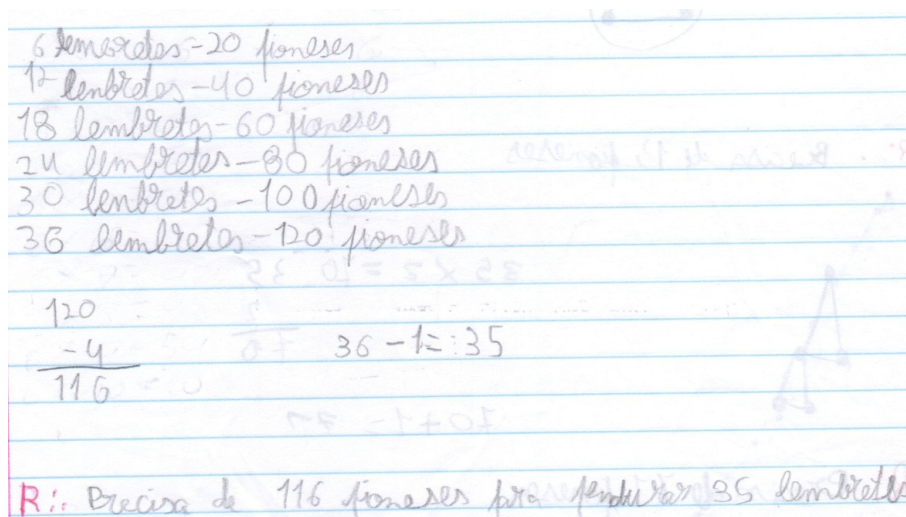 6 lembretes-20 pioneses
12 lenbretes-40 pioneses
18 lembretes-60 pioneses
24 lembretes-80 pioneses
30 lenbretes-100 pioneses
36 lembretes-120 pioneses
120
-4
36-1=:35
116
R:. Precisa de 116 pioneses pra pendurar 35 lembretes